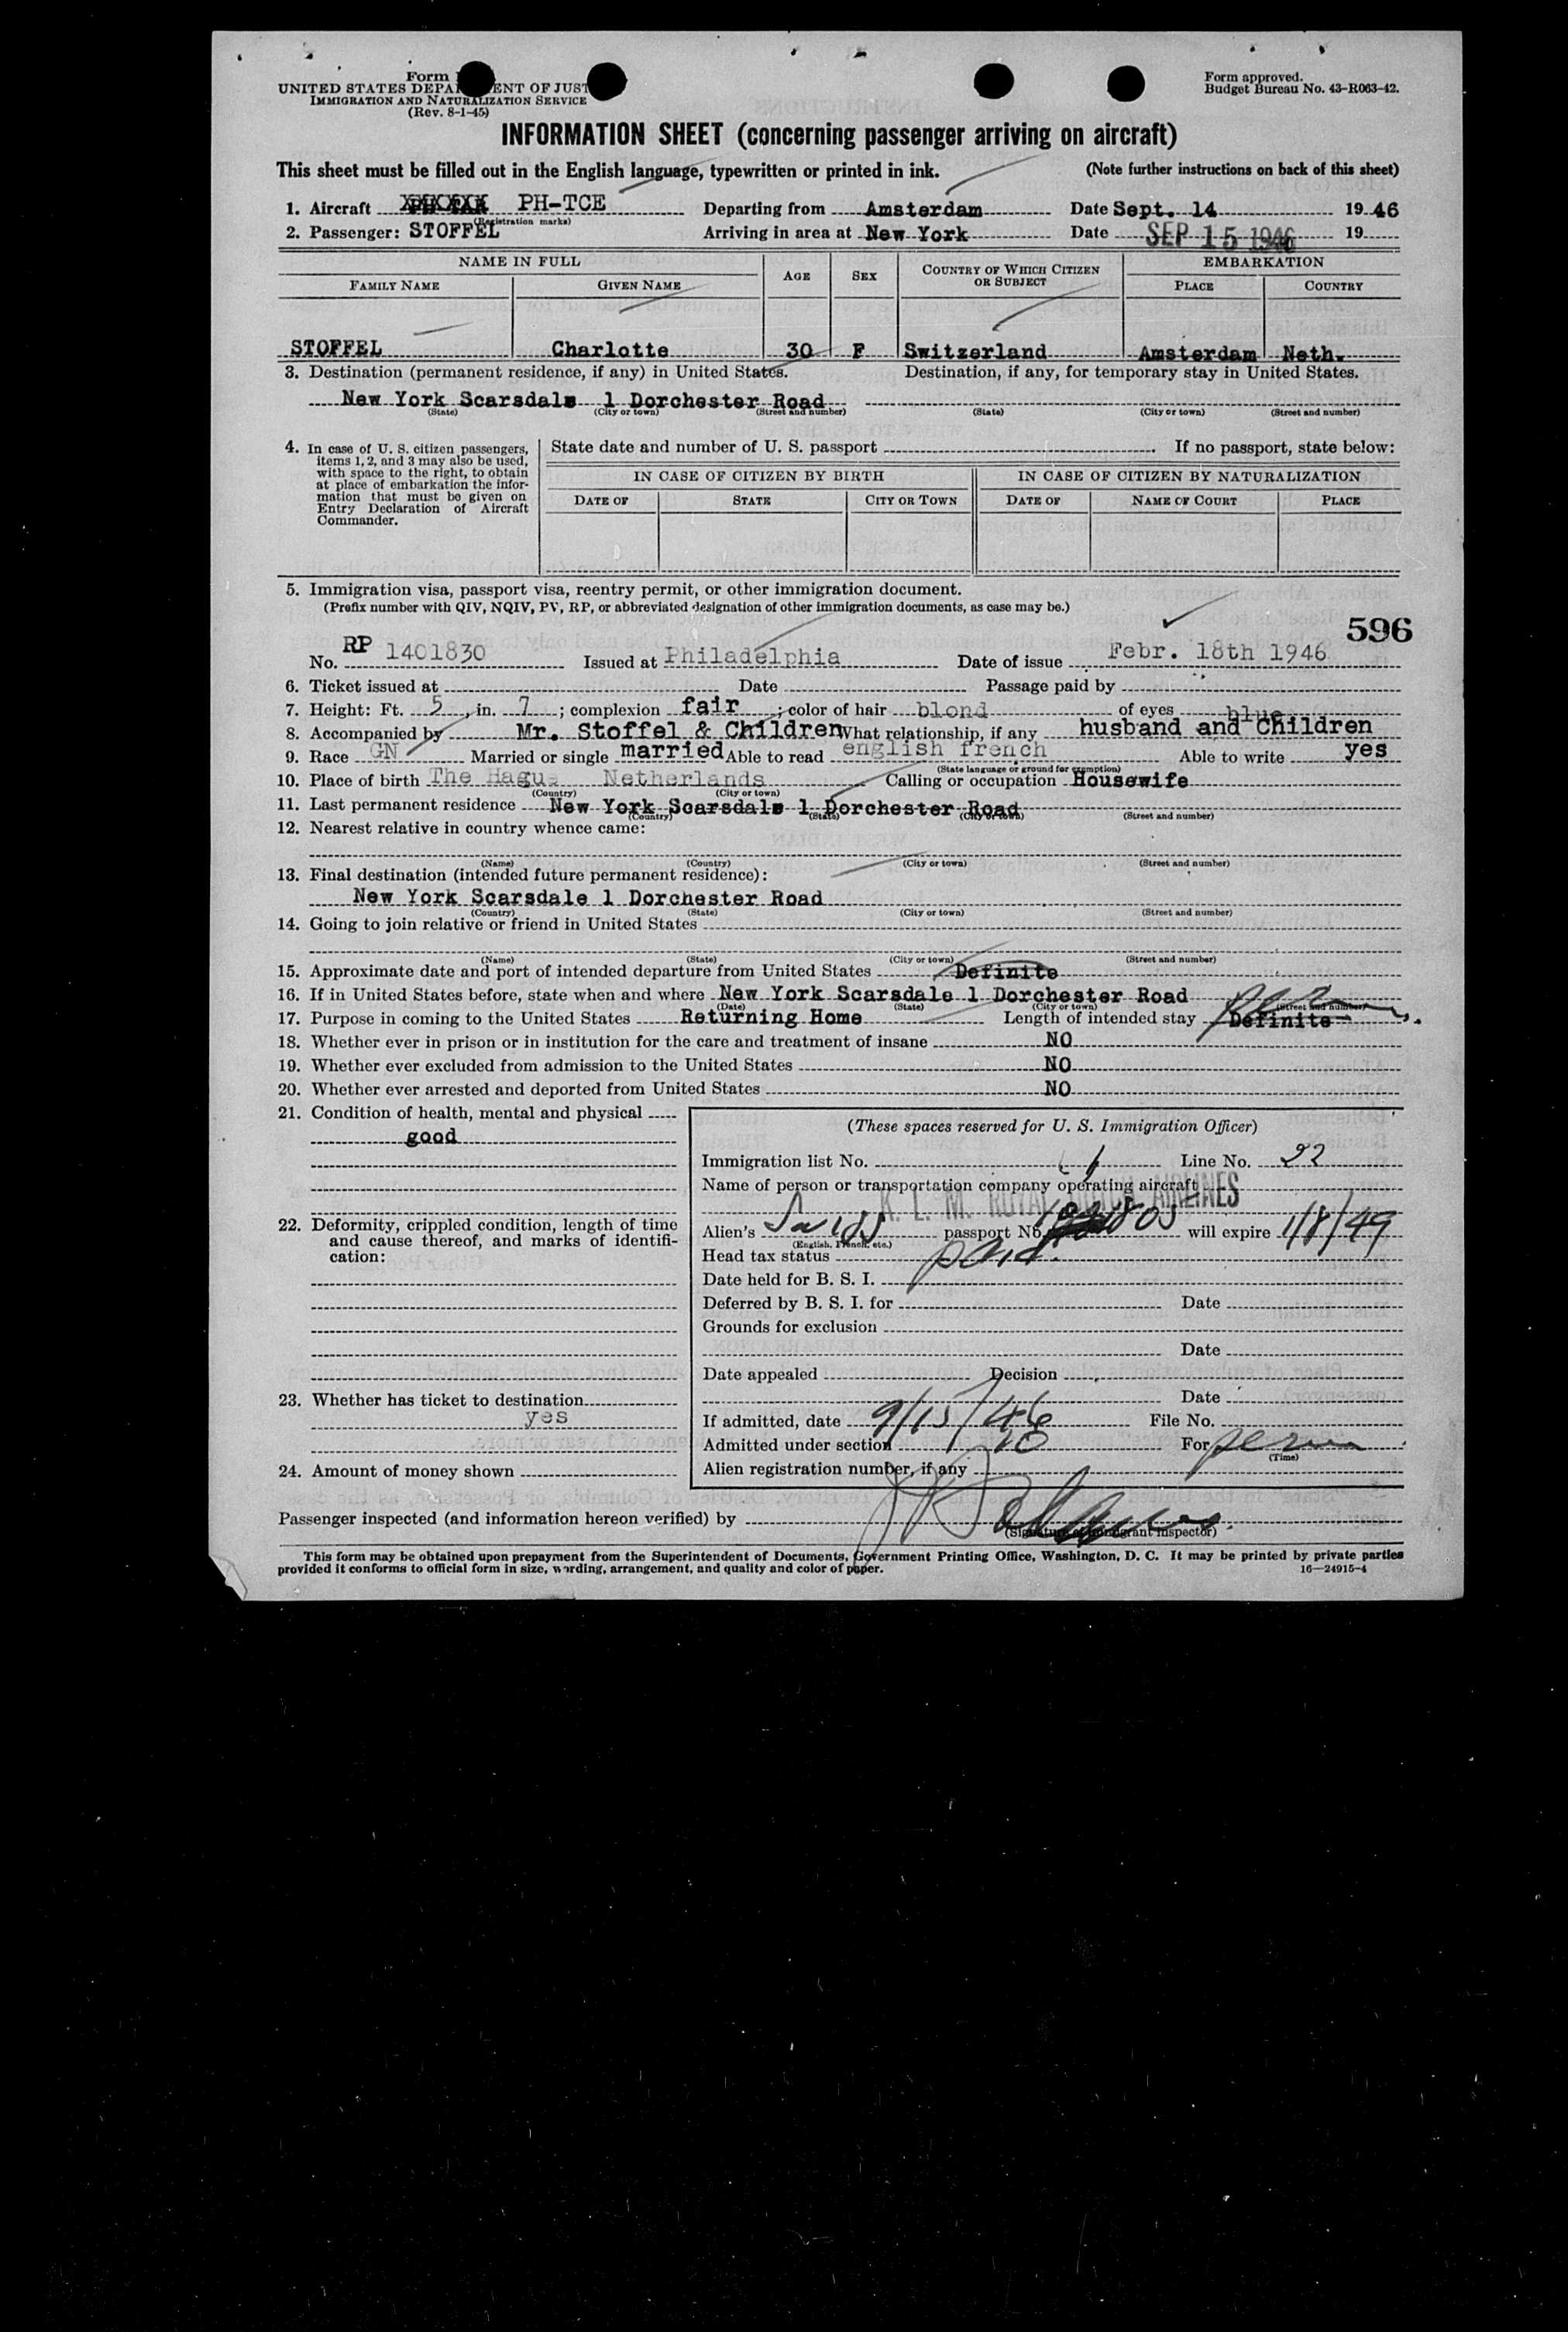 Form
UNITED STATES DEPA ENT OF JUST
IMMIGRATION AND NATURALIZATION SERVICE
(Rev. 8-1-45)
Form approved.
Budget Bureau No. 43-R063-42.
INFORMATION SHEET (concerning passenger arriving on aircraft)
This sheet must be filled out in the English language, typewritten or printed in ink. (Note further instructions on back of this sheet)
1. Aircraft PH-TCE Departing from Amsterdam Date Sept. 14 1946
(Registration marks)
2. Passenger: STOFFEL Arriving in area at New York Date SEP 15 1946 19
NAME IN FULL AGE SEX COUNTRY OF WHICH CITIZEN OR SUBJECT EMBARKATION
FAMILY NAME GIVEN NAME PLACE COUNTRY
STOFFEL Charlotte 30 F Switzerland Amsterdam Neth.
3. Destination (permanent residence, if any) in United States. Destination, if any, for temporary stay in United States.
New York Scarsdale 1 Dorchester Road
(State) (City or town) (Street and number) (State) (City or town) (Street and number)
4. In case of U. S. citizen passengers, items 1, 2, and 3 may also be used, with space to the right, to obtain at place of embarkation the information that must be given on Entry Declaration of Aircraft Commander.
State date and number of U. S. passport If no passport, state below:
IN CASE OF CITIZEN BY BIRTH IN CASE OF CITIZEN BY NATURALIZATION
DATE OF STATE CITY OR TOWN DATE OF NAME OF COURT PLACE
5. Immigration visa, passport visa, reentry permit, or other immigration document.
(Prefix number with QIV, NQIV, PV, RP, or abbreviated designation of other immigration documents, as case may be.)
596
No. RP 1401830 Issued at Philadelphia Date of issue Febr. 18th 1946
6. Ticket issued at Date Passage paid by
7. Height: Ft. 5, in. 7; complexion fair; color of hair blond of eyes blue
8. Accompanied by Mr. Stoffel & Children What relationship, if any husband and Children
9. Race GN Married or single married Able to read english french Able to write yes
(State language or ground for exemption)
10. Place of birth The Hague Netherlands Calling or occupation Housewife
(Country) (City or town)
11. Last permanent residence New York Scarsdale 1 Dorchester Road
(Country) (State) (City or town) (Street and number)
12. Nearest relative in country whence came:
(Name) (Country) (City or town) (Street and number)
13. Final destination (intended future permanent residence):
New York Scarsdale 1 Dorchester Road
(Country) (State) (City or town) (Street and number)
14. Going to join relative or friend in United States
(Name) (State) (City or town) (Street and number)
15. Approximate date and port of intended departure from United States Definite
16. If in United States before, state when and where New York Scarsdale 1 Dorchester Road
(Date) (State) (City or town) (Street and number)
17. Purpose in coming to the United States Returning Home Length of intended stay Definite
18. Whether ever in prison or in institution for the care and treatment of insane NO
19. Whether ever excluded from admission to the United States NO
20. Whether ever arrested and deported from United States NO
21. Condition of health, mental and physical
good
22. Deformity, crippled condition, length of time and cause thereof, and marks of identification:
23. Whether has ticket to destination
yes
24. Amount of money shown
(These spaces reserved for U. S. Immigration Officer)
Immigration list No. Line No. 22
Name of person or transportation company operating aircraft
K. L. M. ROYAL DUTCH AIRLINES
Alien's Swiss passport No. will expire 1/8/49
(English, French, etc.)
Head tax status paid
Date held for B. S. I.
Deferred by B. S. I. for Date
Grounds for exclusion
Date
Date appealed Decision
Date
If admitted, date 9/15/46 File No.
Admitted under section 10 For perm
(Time)
Alien registration number, if any
Passenger inspected (and information hereon verified) by
(Signature of immigrant inspector)
This form may be obtained upon prepayment from the Superintendent of Documents, Government Printing Office, Washington, D. C. It may be printed by private parties
provided it conforms to official form in size, wording, arrangement, and quality and color of paper. 16—24915-4